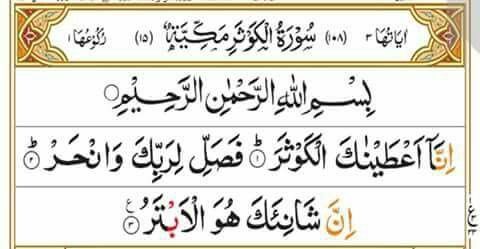 اٰيَاتُهَا ٣ (١٠٨) سُوْرَةُ الْكَوْثَرِ مَكِّيَّةٌ (١٥) رُكُوْعُهَا ١
بِسْمِ اللّٰهِ الرَّحْمٰنِ الرَّحِيْمِ
اِنَّآ اَعْطَيْنٰكَ الْكَوْثَرَ ؕ﴿١﴾ فَصَلِّ لِرَبِّكَ وَانْحَرْ ؕ﴿٢﴾
اِنَّ شَانِئَكَ هُوَ الْاَبْتَرُ ﴿٣﴾ ع